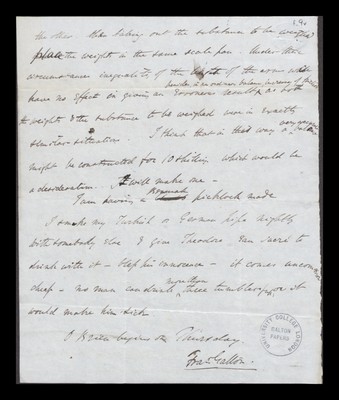 the other then taking out the substance to be weighed
place the weights in the same scale pan. Under these
circumstances inequality of the length of the arms will
have no effect in giving an erroneous result, as both
the weights & the substance to be weighed were in exactly
similar situations. I think that in this way a
might be constructed for 10 shillings which would be
a desideratum. I will make one –
I am having a Bramah picklock made
I smoke my Turkish or German pipe nightly
with somebody else & give Theodore, Eau Sucré to
drink with it – bless his innocence – it comes uncommon
cheap – no man can drink more than three tumblers of it
would make him sick
begins on Thursday
Fras Galton.
UNIVERSITY COLLEGE LONDON
GALTON
PAPERS